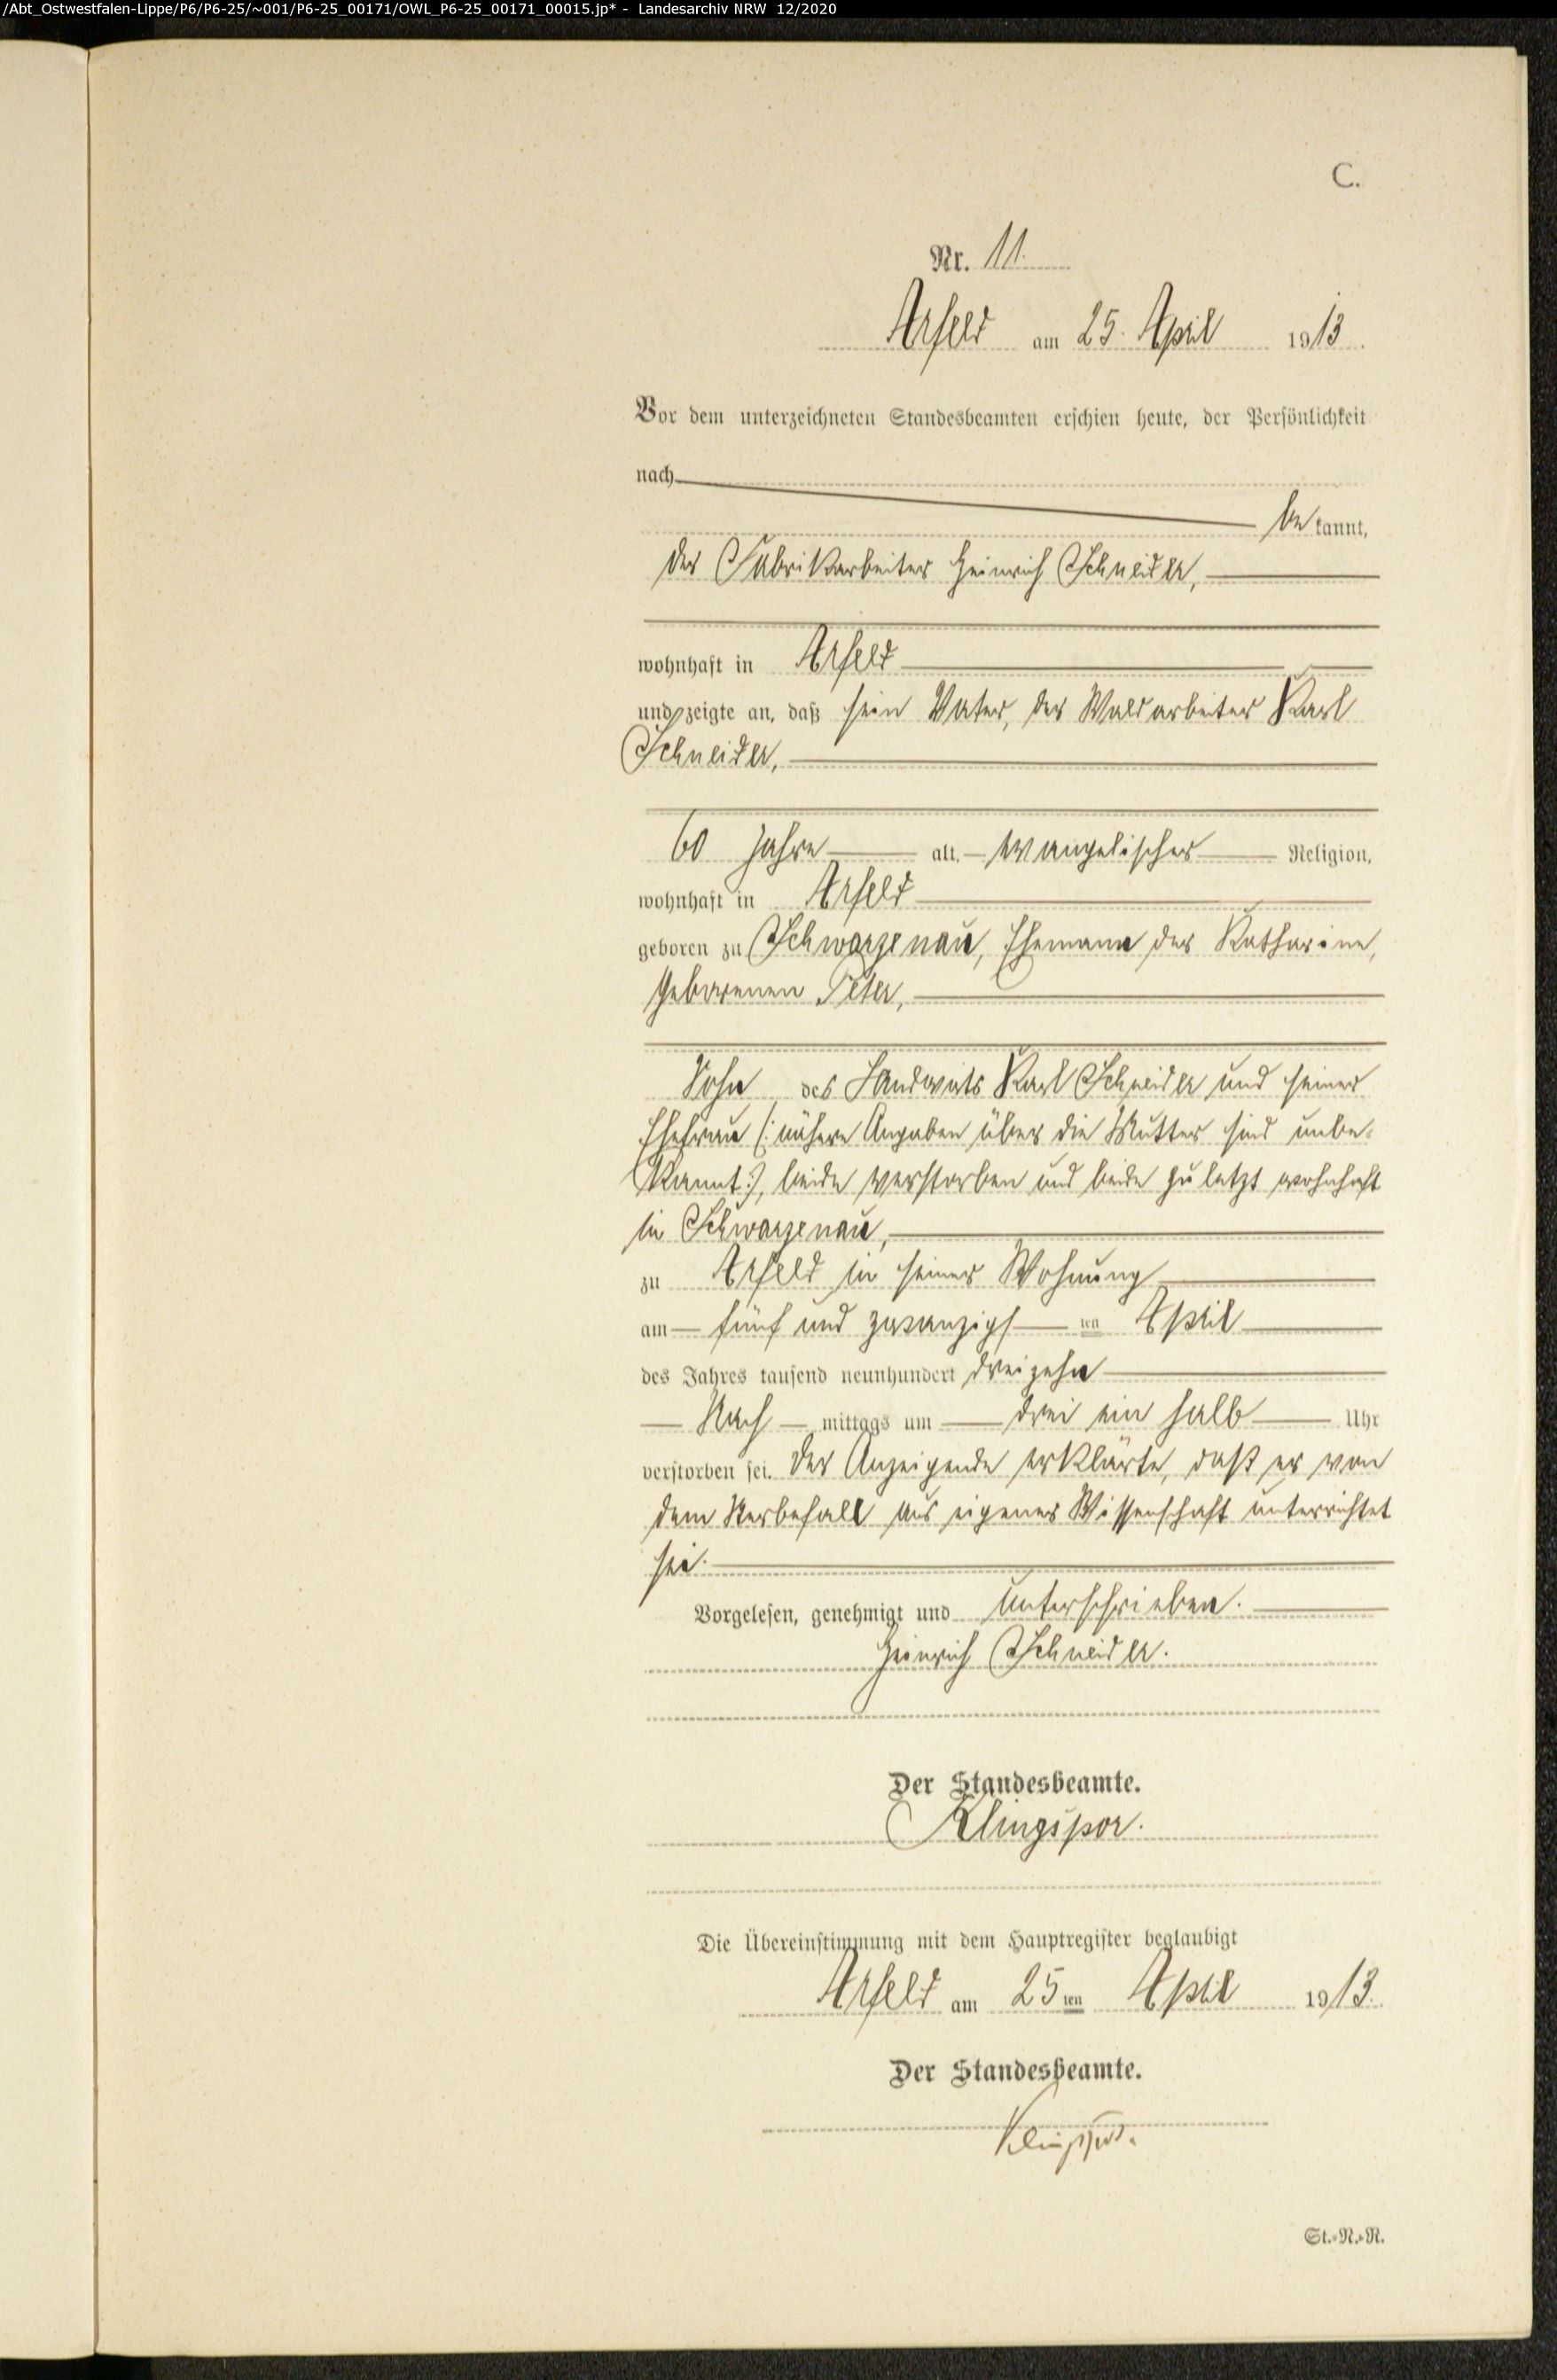 /Abt_Ostwestfalen-Lippe/P6/P6-25/~001/P6-25_00171/OWL_P6-25_00171_00015.jp* - Landesarchiv NRW 12/2020
C.
Nr. 11.
Arfeld am 25. April 1913.
Vor dem unterzeichneten Standesbeamten erschien heute, der Persönlichkeit
nach
bekannt,
der Fabrikarbeiter Heinrich Schneider,
wohnhaft in Arfeld
und zeigte an, daß sein Vater, der Waldarbeiter Karl
Schneider,
60 Jahre alt, evangelischer Religion,
wohnhaft in Arfeld
geboren zu Schwarzenau, Ehemann der Katharine,
geborenen Peter,
Sohn des Landwirts Karl Schneider und seiner
Ehefrau (: nähere Angaben über die Mutter sind unbe-
kannt :), beide verstorben und beide zuletzt wohnhaft
in Schwarzenau,
zu Arfeld in seiner Wohnung
am fünf und zwanzigsten April
des Jahres tausend neunhundert dreizehn
Nachmittags um drei ein halb Uhr
verstorben sei. Der Anzeigende erklärte, daß er von
dem Sterbefall aus eigener Wissenschaft unterrichtet
sei.
Vorgelesen, genehmigt und unterschrieben.
Heinrich Schneider.
Der Standesbeamte.
Klingspor.
Die Übereinstimmung mit dem Hauptregister beglaubigt
Arfeld am 25ten April 1913.
Der Standesbeamte.
Klingspor.
St.-N.-R.